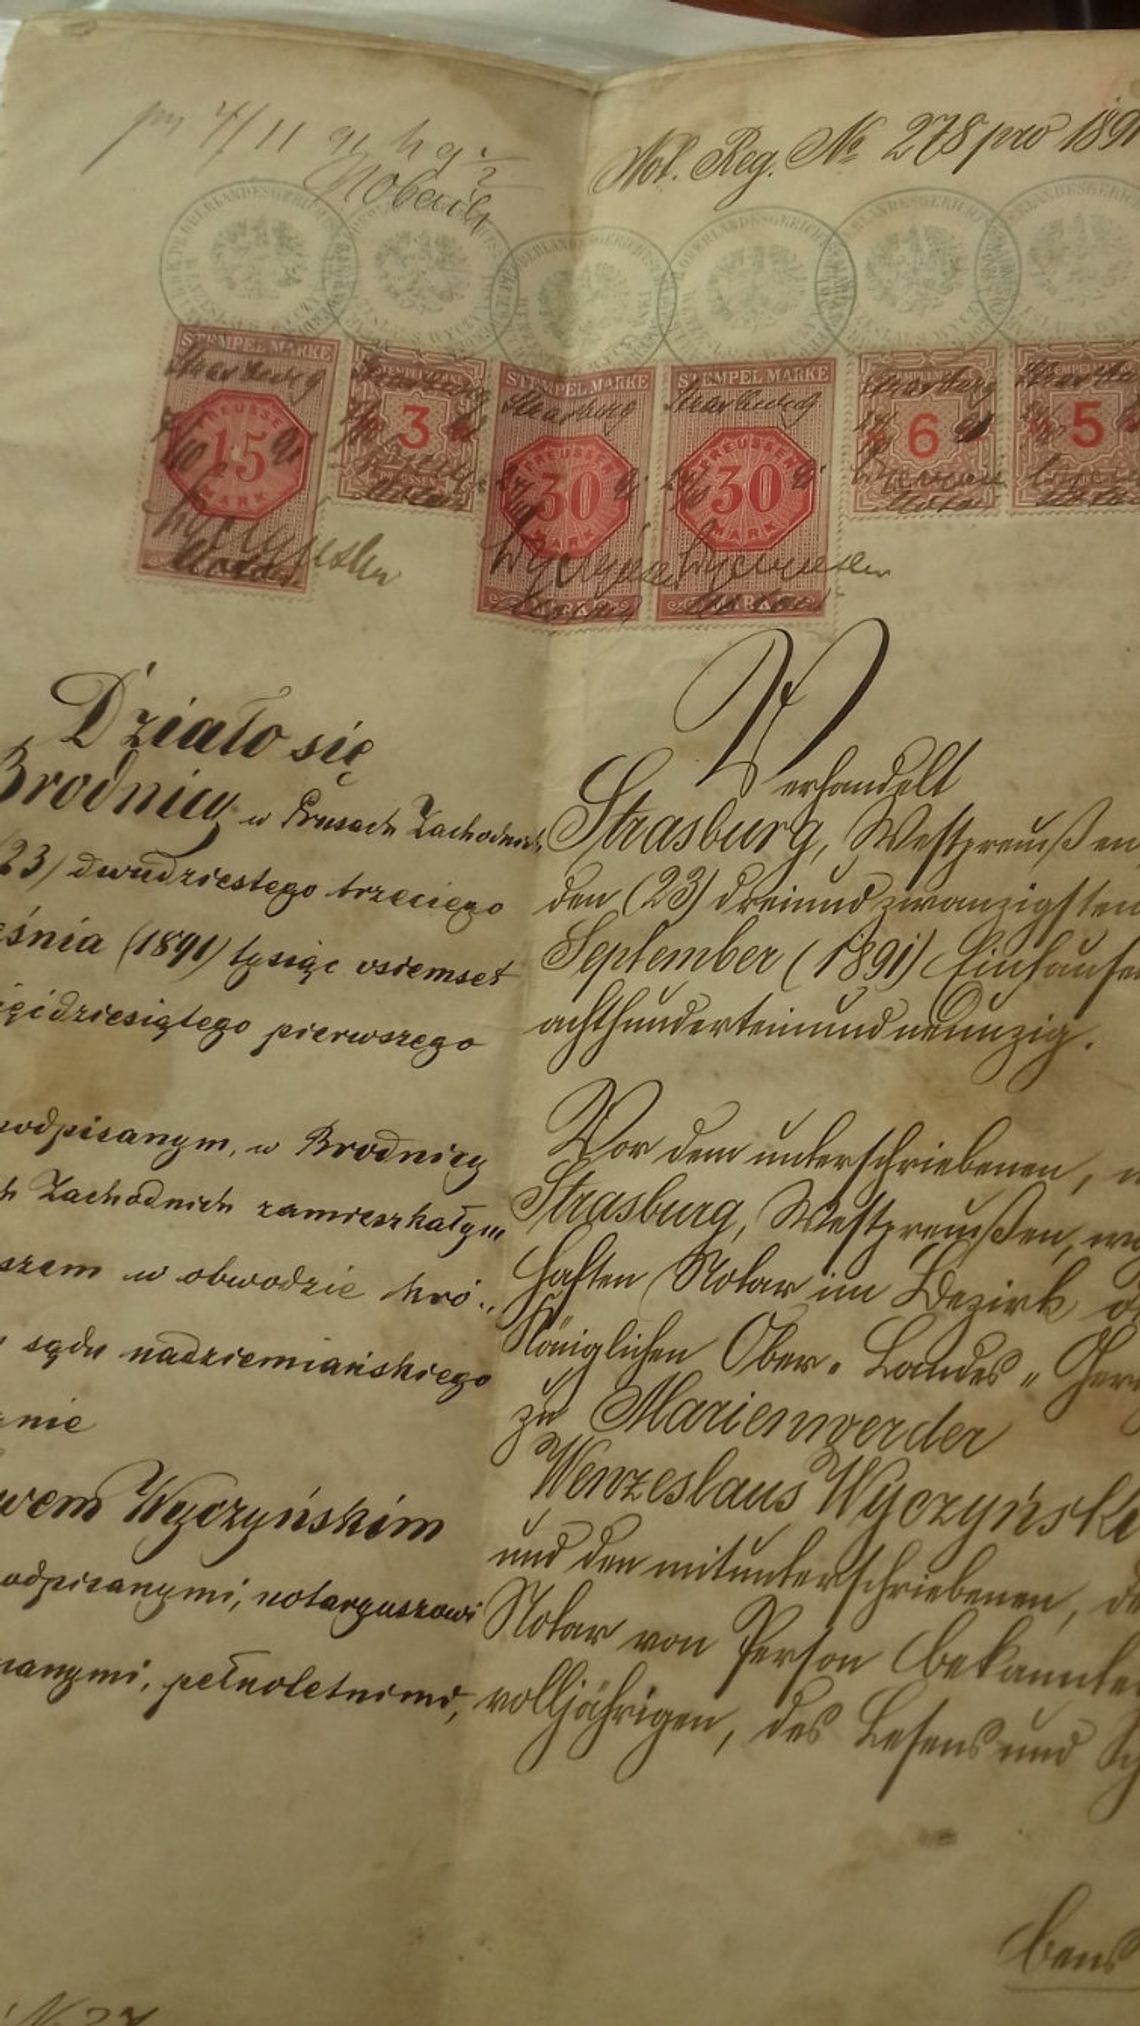 Not. Reg. No 278 pro 1891
STEMPEL MARKE
PREUSSEN
15
MARK
3
STEMPEL MARKE
Strasburg
PREUSSEN
30
MARK
STEMPEL MARKE
Strasburg
PREUSSEN
30
MARK
6
5
Działo się
Brodnicy w Prusach Zachodnich
23) dwudziestego trzeciego
eśnia (1891) tysiąc osiemset
ięćdziesiątego pierwszego
podpisanym, w Brodnicy
h Zachodnich zamieszkałym
szem w obwodzie kró.,
sądu nadziemiańskiego
nie
wem Wyczyńskim
odpisanymi, notaryuszowi
nanymi, pełnoletnimi,
Verhandelt
Strasburg, Westpreußen
den (23) dreiundzwanzigsten
September (1891) Eintausen
achthunderteinundneunzig.
Vor dem unterschriebenen,
Strasburg, Westpreußen, wo
haften Notar im Bezirk d
Königlichen Ober-Landes-Geri
zu Marienwerder
Wenzeslaus Wyczyński
und den mitunterschriebenen, de
Notar von Person bekannte
volljährigen, des Lesens und Sch